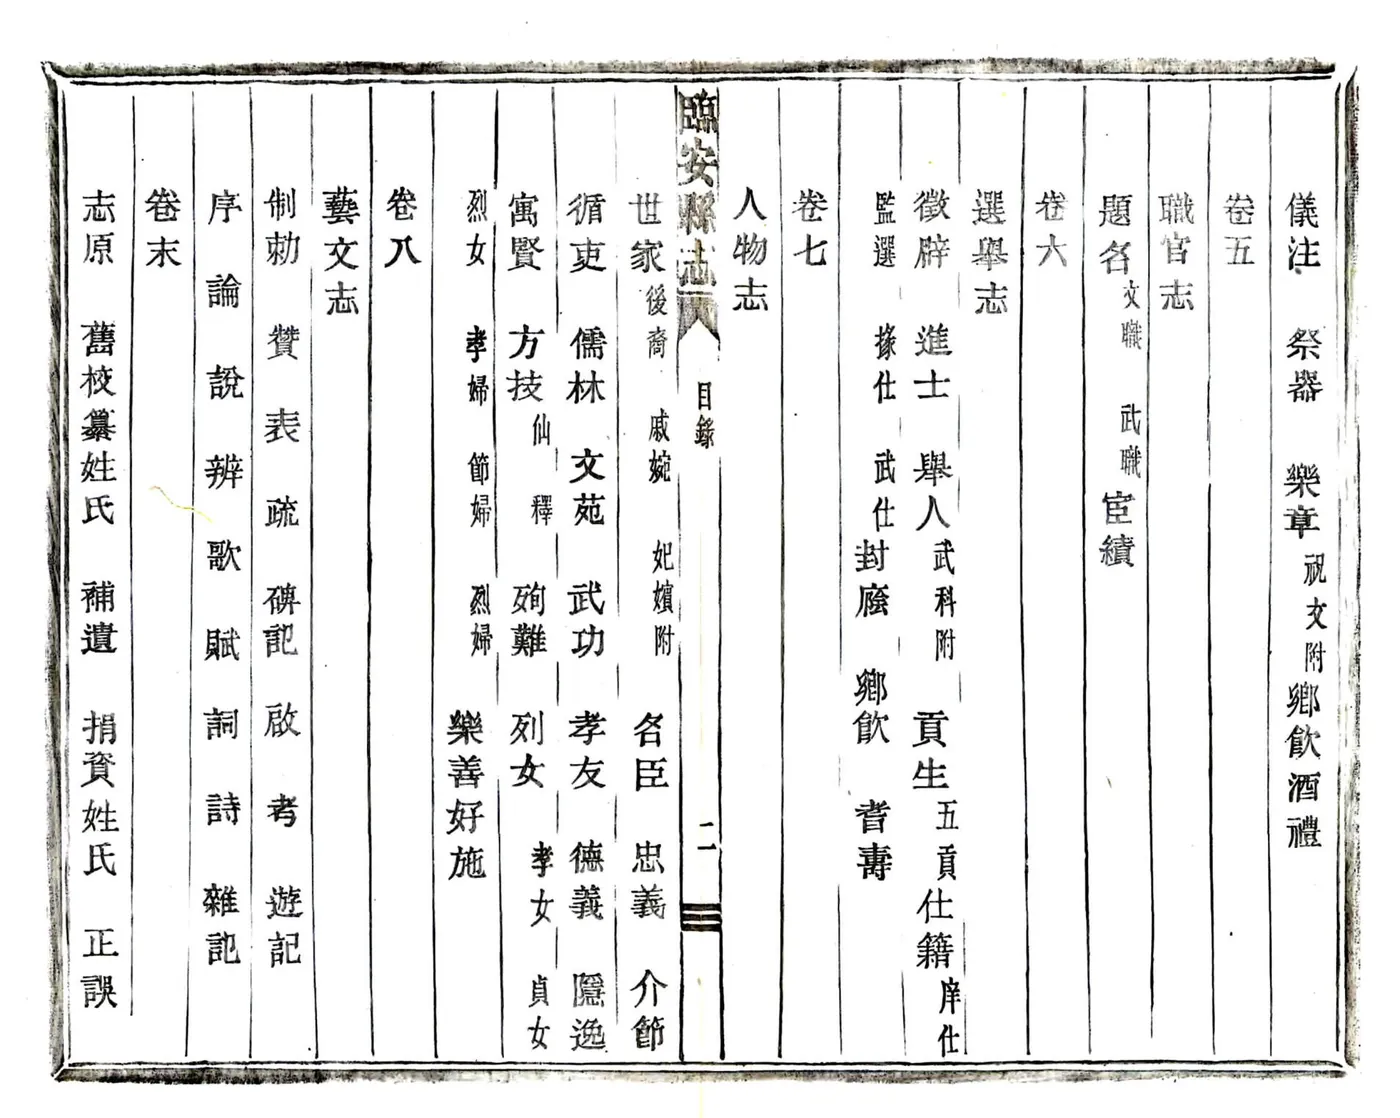 儀注　祭器　樂章祝文附鄉飲酒禮
卷五
職官志
題名文職　武職宦績
卷六
選舉志
徵辟　進士　舉人武科附　貢生五貢仕籍庠仕
監選　掾仕　武仕封廕　鄉飲　耆壽
卷七
人物志
臨安縣志　目錄　二
世家後裔　戚婉　妃嬪附　名臣　忠義　介節
循吏　儒林　文苑　武功　孝友　德義　隱逸
寓賢　方技仙　釋　殉難　列女　孝女　貞女
烈女　孝婦　節婦　烈婦　樂善好施
卷八
藝文志
制勅　贊　表　疏　碑記　啟　考　遊記
序　論　說　辨　歌　賦　詞　詩　雜記
卷末
志原　舊校纂姓氏　補遺　捐資姓氏　正誤